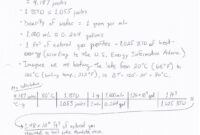 = 4.187 joules
• 1 BTU = 1055 joules
• Density of water = 1 gram per mL
• 1,000 mL = 0.264 gallons
• 1 ft³ of natural gas provides ≈ 1025 BTU of heat
energy (according to the U.S. Energy Information Admin.)
• Imagine we are heating the lake from 20°C (68°F) to
100°C (boiling temp., 212°F), so ΔT = 100 - 20 = 80°C.
4.187 joules 80°C 1 BTU 1 g 1,000 mL gal 1 ft³
°C·g 1055 1 mL 0.264 gal 1025 BTU
ft³ of natural gas